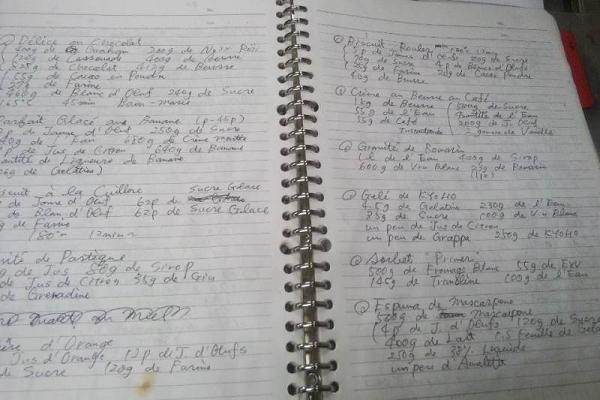 Délice au Chocolat
400g de Graham 200g de Noix Rôti
120g de Cassonade 400g de Beurre
de Chocolat 417g de Beurre
55g de Cacao en Poudre
de Farine
460g de Blanc d'Oeuf 240g de Sucre
165°C 45min Bain-Marie
Parfait Glacé aux Banane (1p-45p)
de Jaune d'Oeuf 250g de Sucre
de Eau 680g de Crème
de Jus de Citron 680g de Banane
de Liqueure de Banane
de Gelatine)
Biscuit à la Cuillere Sucre Glace
de Jaune d'Oeuf 62p de
de Blanc d'Oeuf 62p de Sucre Glace
de Farine
180°C 12min
de Pastèque
de Jus 80g de Sirop
de Jus de Citron 35g de Gin
de Grenadine
d'Orange
Jus d'Orange 12p de J. d'Oeufs
de Sucre 120g de Farine
Biscuit Roulez
de Jaune d'Oeufs 20g de Sucre
de Sucre 4p de Blanc d'Oeufs
de Farine 20g de Cacao Poudre
60g de Beurre
Crème au Beurre au Café
1kg de Beurre 500g de Sucre
55g de l'Eau
55g de Café 200g de J. Oeuf
Gousse de Vanille
Granité de Romarin
1L de l'Eau 400g de Sirop
600g de Vin Blanc 35g de Romarin
Gelé de KYOHO
45g de Gelatine 230g de l'Eau
85g de Sucre 600g de Vin Blanc
un peu de Jus de Citron
un peu de Grappa 250g de KYOHO
Sorbet "Primeur"
500g de Fromage Blanc 55g de EXV
145g de Trimoline 100g de l'Eau
Espuma de Mascarpone
500g de Mascarpone
4p de J. d'Oeufs 120g de Sucre
400g de Lait 1,5 Feuille de
250g de 38% Liquide
un peu d'Amaretto